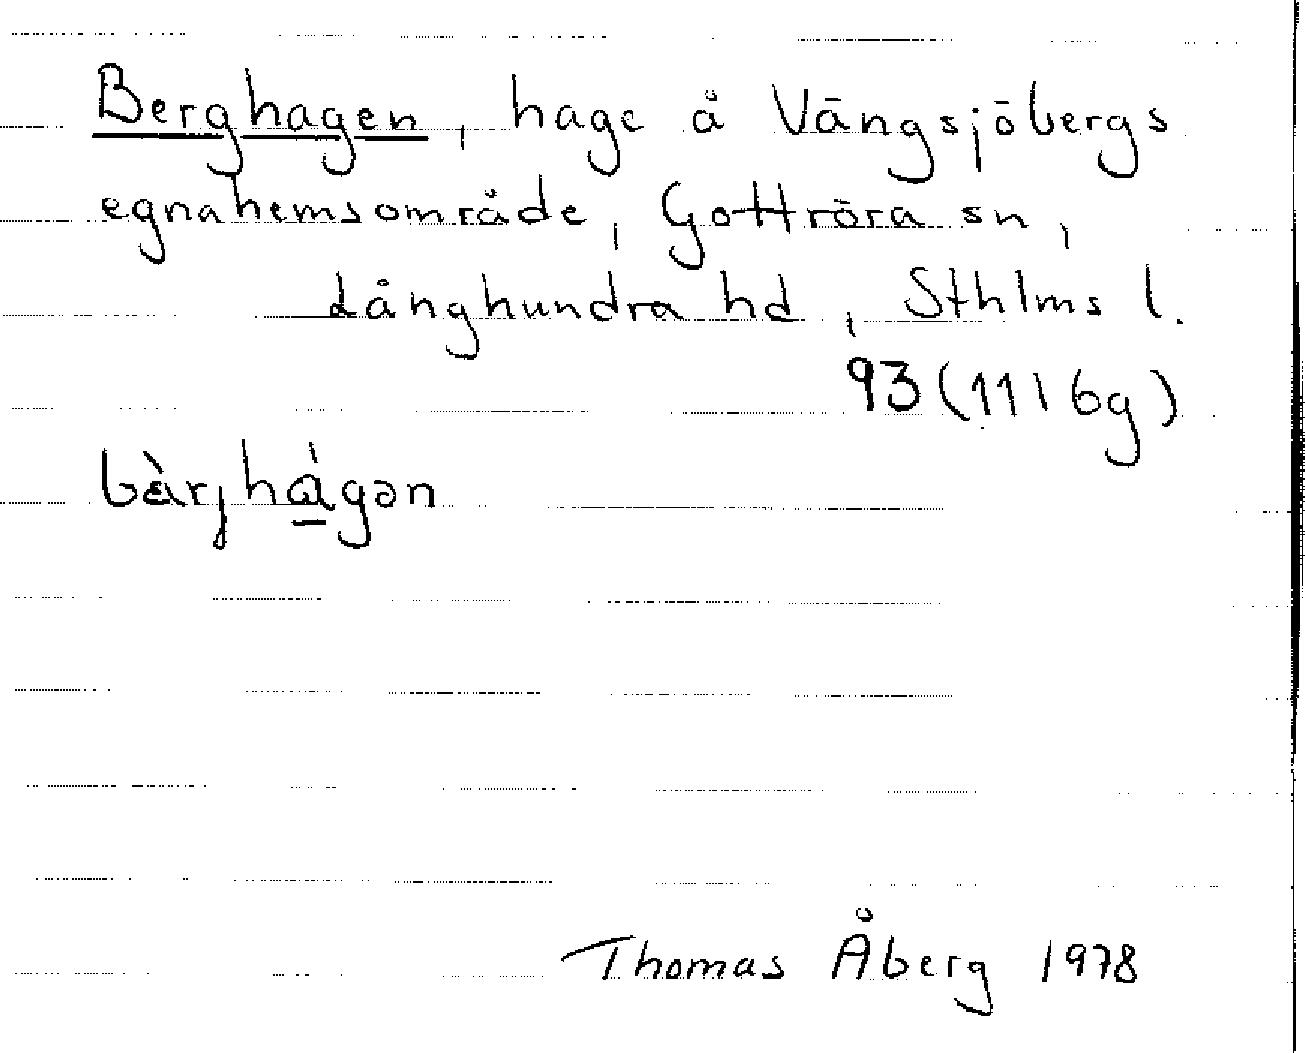 Berghagen, hage å Vängsjöbergs
egnahemsområde, Gottröra sn,
Långhundra hd, Sthlms l.
93 (11I 6g)
bàrjhágən
Thomas Åberg 1978